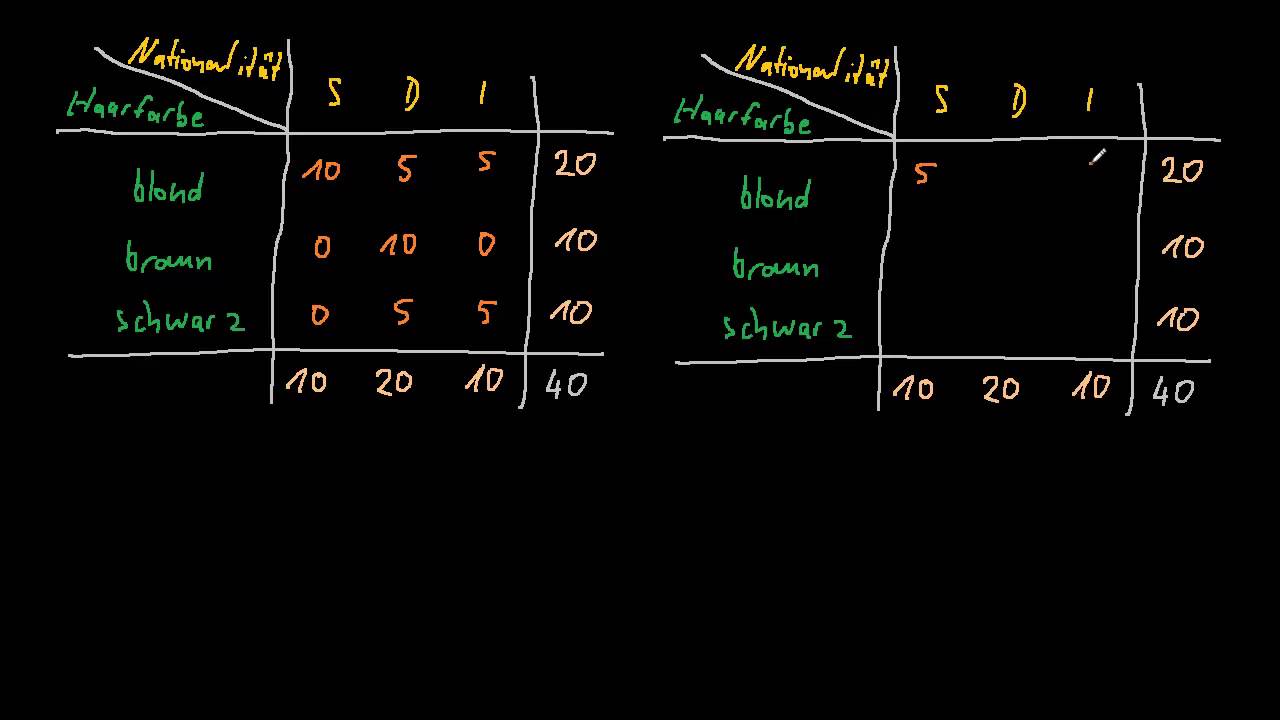 Nationalität
Haarfarbe S D I
blond 10 5 5 20
braun 0 10 0 10
schwarz 0 5 5 10
10 20 10 40
Nationalität
Haarfarbe S D I
blond 5 20
braun 10
schwarz 10
10 20 10 40